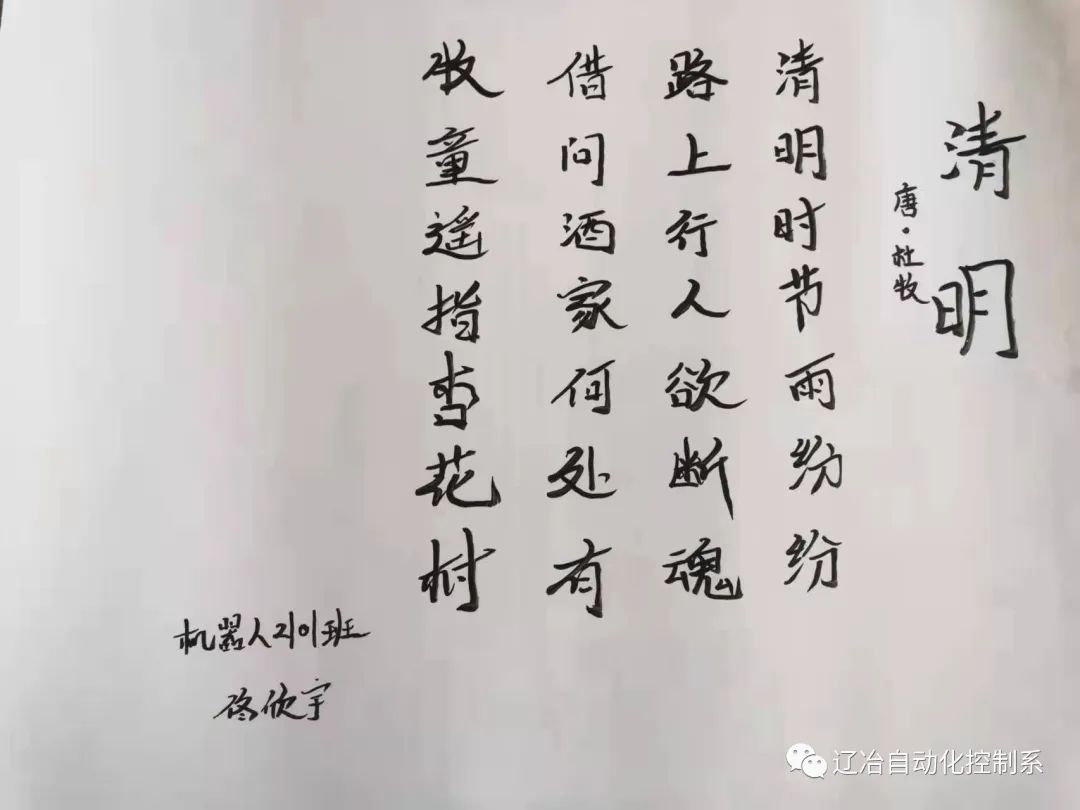 清明
唐·杜牧
清明时节雨纷纷
路上行人欲断魂
借问酒家何处有
牧童遥指杏花村
机器人2101班
佟欣宇
辽冶自动化控制系